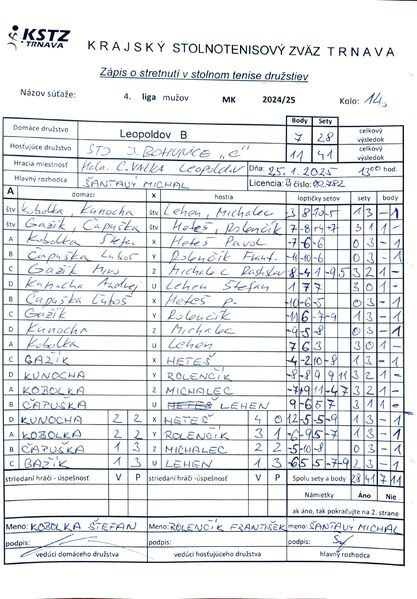 KSTZ
TRNAVA
KRAJSKÝ STOLNOTENISOVÝ ZVÄZ TRNAVA
Zápis o stretnutí v stolnom tenise družstiev
Názov súťaže: 4. liga mužov MK 2024/25 Kolo: 14.
Body Sety
Domáce družstvo Leopoldov B 7 28 celkový výsledok
Hosťujúce družstvo STO J. BOHUNICE "C" 11 41 celkový výsledok
Hracia miestnosť Hala C. VALKA Leopoldov Dňa: 25.1.2025 hod.
Hlavný rozhodca ŠANTAVÝ MICHAL Licencia číslo:
A domáci X hostia loptičky setov sety body
štv Kobolka, Kunocha štv Lehen, Michalec 1 3 - 1
štv Gažík, Čapuška štv Heteš, Rolenčík 3 1 1 -
A Kobolka Štefan X Heteš Pavol -7-6-6 0 3 - 1
B Čapuška Ľuboš Y Rolenčík Frant. 0 3 - 1
C Gažík Miro Z Michalec Rastislav 3 2 1 -
D Kunocha Andrej U Lehen Štefan 1 7 7 3 0 1 -
B Čapuška Ľuboš X Heteš P. -8-10-6-5 0 3 - 1
C Gažík Y Rolenčík 1 3 - 1
D Kunocha Z Michalec -9-5-8 0 3 - 1
A Kobolka U Lehen 7 6 3 3 0 1 -
C GAŽÍK X HETEŠ -4-2 10-8 1 3 - 1
D KUNOCHA Y ROLENČÍK 3 2 1 -
A KOBOLKA Z MICHALEC 3 2 1 -
B ČAPUŠKA U LEHEN 9-6 5 7 3 1 1 -
D KUNOCHA 2 2 X HETEŠ 4 0 12-5-5-9 1 3 - 1
A KOBOLKA 2 2 Y ROLENČÍK 3 1 -6-9 5-7 1 3 - 1
B ČAPUŠKA 1 3 Z MICHALEC 2 2 -5-10-8 0 3 - 1
C GAŽÍK 1 3 U LEHEN 1 3 -6 5 5-7-9 2 3 - 1
striedaní hráči - úspešnosť V P striedaní hráči - úspešnosť V P Spolu sety a body 28 41 7 11
Námietky Áno Nie
ak áno, tak pokračujte na 2. strane
Meno: KOBOLKA ŠTEFAN Meno: ROLENČÍK FRANTIŠEK Meno: ŠANTAVÝ MICHAL
podpis: podpis: podpis:
vedúci domáceho družstva vedúci hosťujúceho družstva hlavný rozhodca